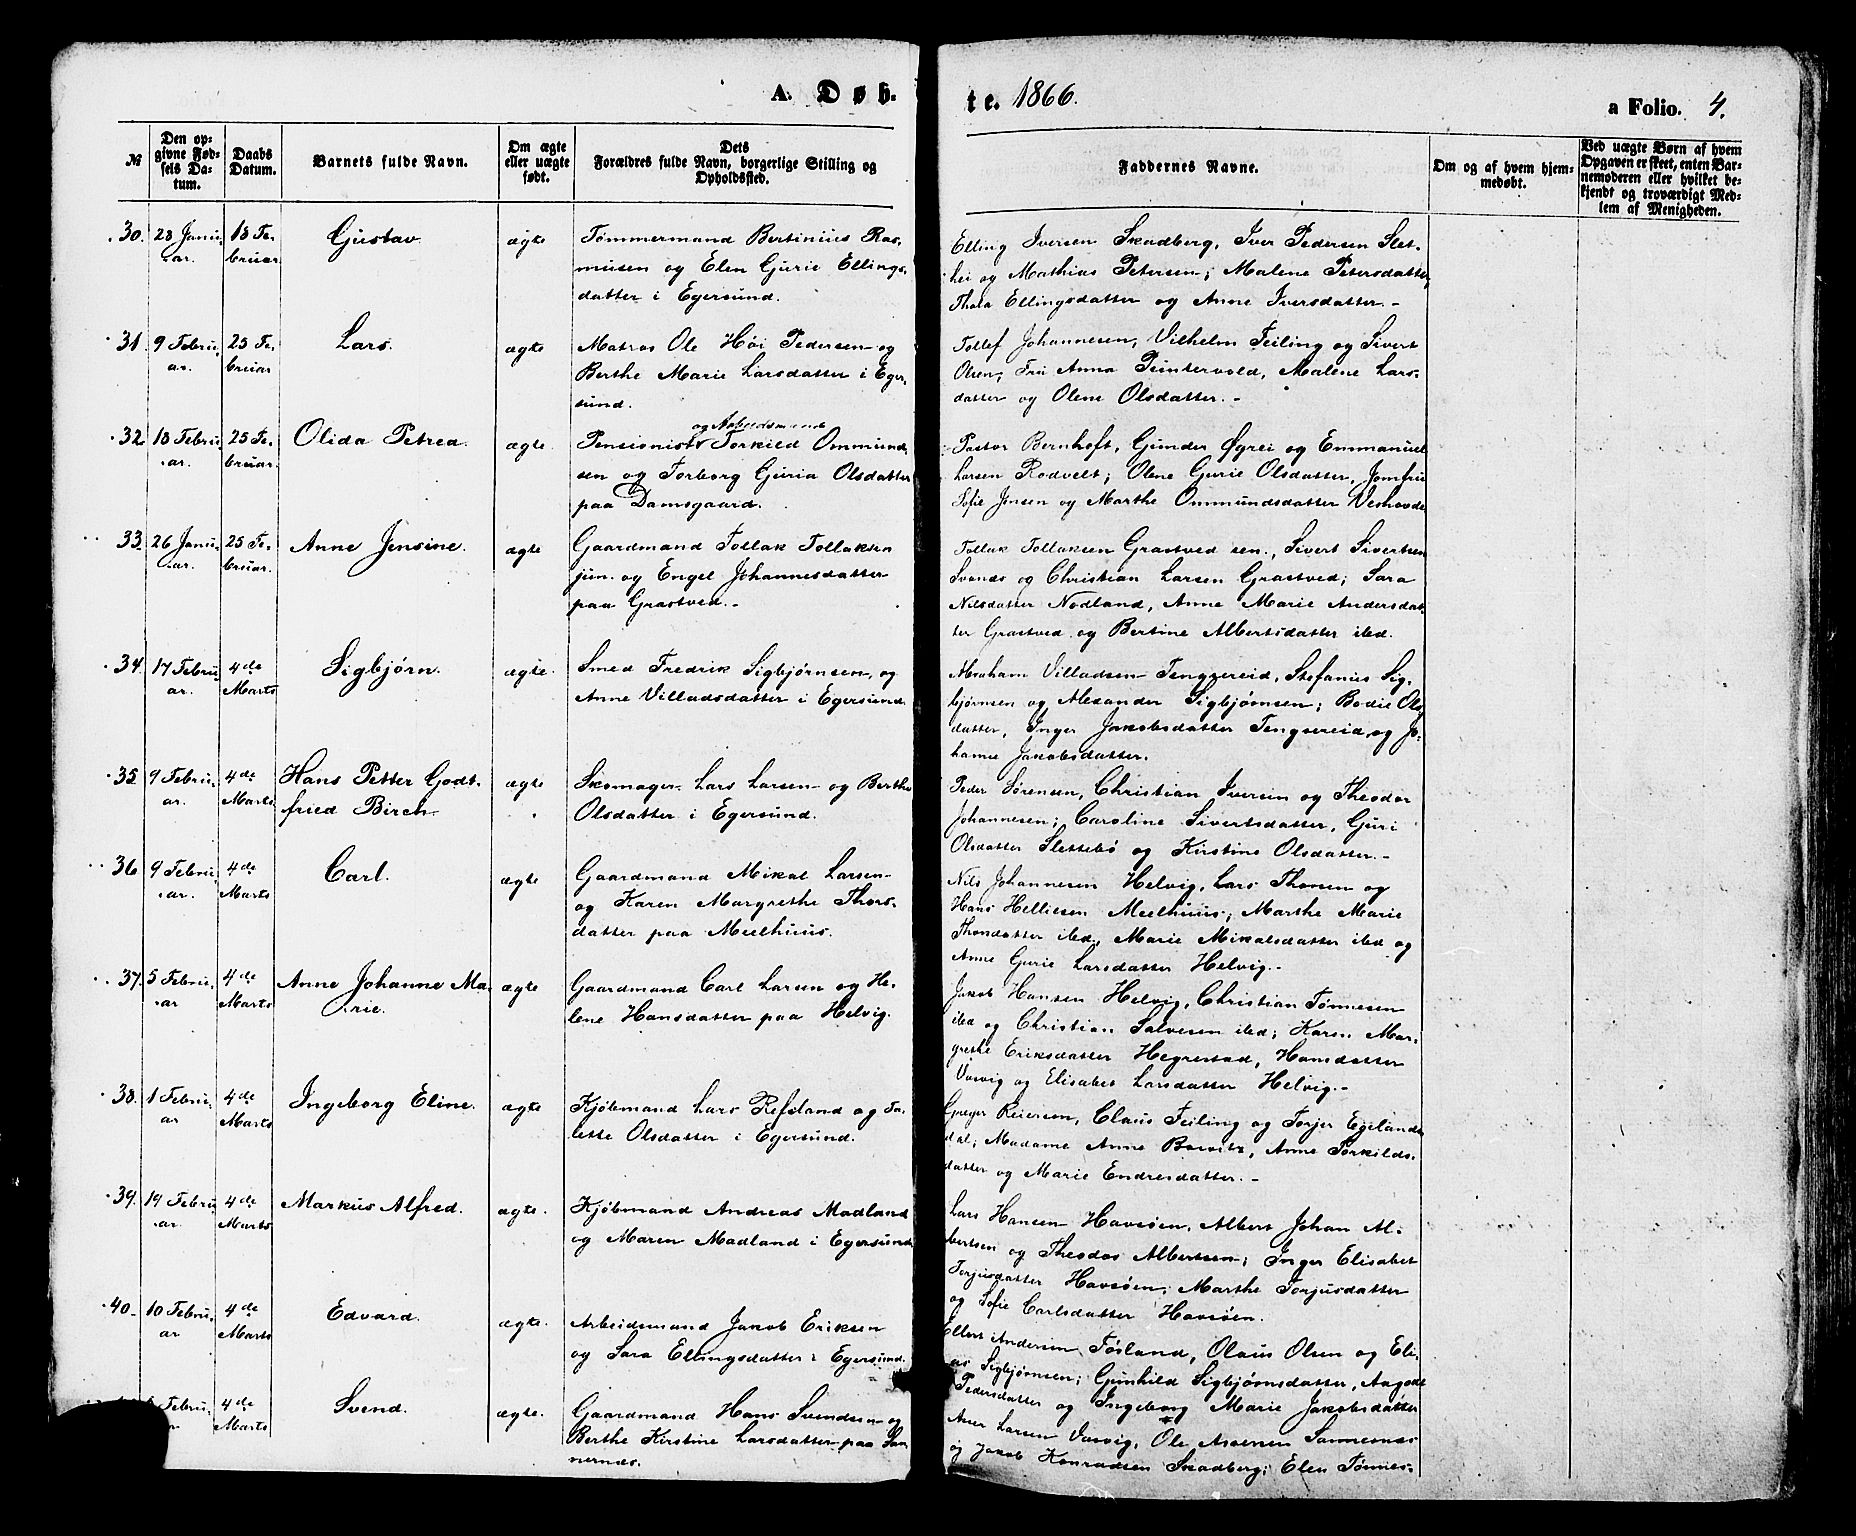 A. Døb-
te. 1866.
a Folio. 4.
№
Den op-
givne Fød-
sels Da-
tum.
Daabs
Datum.
Barnets fulde Navn.
Om ægte
eller uægte
født.
Dets
Forældres fulde Navn, borgerlige Stilling og
Opholdssted.
Faddernes Navne.
Om og af hvem hjem-
medøbt.
Ved uægte Børn af hvem
Opgaven er skeet, enten Bar-
nemoderen eller hvilket be-
kjendt og troværdigt Med-
lem af Menigheden.
30. 28 Janu- 18 Fe- Gustav. ægte Tømmermand Bertinius Ras-
ar. bruar. musen og Elen Gurie Ellings-
datter i Egersund.
Elling Iversen Skadberg, Iver Pedersen Slet-
hei og Mathias Petersen; Malene Petersdatter,
Thala Ellingsdatter og Anne Iversdatter. -
31. 9 Febru- 25 Fe- Lars. ægte Matros Ole Høi Pedersen og
ar. bruar Berthe Marie Larsdatter i Eger-
sund.
Tollef Johannesen, Vilhelm Feiling og Sivert
Olsen; Fru Anna Puntervold, Malene Lars-
datter og Olene Olsdatter. -
og Arbeidsmand
32. 18 Febru- 25 Fe- Olida Petrea. ægte. Pensionist Torkild Ommund-
ar. bruar. sen og Torborg Guria Olsdatter
paa Damsgaard.
Pastor Bernhoft, Gunder Øgrei og Emmanuel
Larsen Rodvelt; Olene Gurie Olsdatter, Jomfru
Sofie Jensen og Marthe Ommundsdatter Veshovde
33. 26 Janu- 25 Fe- Anne Jensine. ægte Gaardmand Tollak Tollaksen
ar. bruar. jun. og Engel Johannesdatter
paa Grastved. -
Tollak Tollaksen Grastved sen., Sivert Sivertsen
Svanes og Christian Larsen Grastved; Sara
Nilsdatter Nodland, Anne Marie Andersdat-
ter Grastved og Bertine Albertsdatter ibid.
34. 17 Febru- 4de Sigbjørn. ægte. Smed Fredrik Sigbjørnsen, og
ar. Marts Anne Villadsdatter i Egersund.
Abraham Villadsen Tengsereid, Stefanius Sig-
bjørnsen og Alexander Sigbjørnsen; Bodil Ols-
datter, Inger Jakobsdatter Tengsereid og Jo-
hanne Jakobsdatter.
35 9 Febru- 4de Hans Petter Godt- ægte Skomager Lars Larsen og Berthe
ar. Marts. fried Birch. Olsdatter i Egersund.
Peder Sørensen, Christian Iversen og Theodor
Johannesen; Caroline Sivertsdatter, Guri
Olsdatter Slettebø og Kirstine Olsdatter. -
36 9 Febru- 4de Carl. ægte Gaardmand Mikal Larsen
ar. Marts og Karen Margrethe Thors-
datter paa Meelhuus.
Nils Johannesen Helvig, Lars Thorsen og
Hans Helliesen Meelhuus; Marthe Marie
Thorsdatter ibid, Marie Mikalsdatter ibid og
Anne Gurie Larsdatter Helvig. -
37. 5 Febru- 4de Anne Johanne Ma- ægte Gaardmand Carl Larsen og He-
ar Marts rie. lene Hansdatter paa Helvig.
Jakob Hansen Helvig, Christian Tønnesen
ibid og Christian Salvesen ibid; Karen Mar-
grethe Eriksdatter Hegrestad, Hansdatter
Varvig og Elisabet Larsdatter Helvig. -
38. 1 Febru- 4de Ingeborg Eline. ægte Kjøbmand Lars Refsland og Ta-
ar Marts lette Olsdatter i Egersund.
Greger Reiersen, Claus Feiling og Torjer Egelands-
dal; Madame Anne Torkilds-
datter og Marie Endresdatter. -
39. 19 Febru- 4de Markus Alfred. ægte. Kjøbmand Andreas Madland
ar. Marts og Maren Madland i Egersund
Lars Hansen Havsøen, Albert Johan Al-
bertsen og Theodor Albertsen; Inger Elisabet
Torjusdatter Havsøen, Marthe Torjusdatter
og Sofie Carlsdatter Havsøen.
40. 10 Febru- 4de Edvard. ægte. Arbeidsmand Jakob Eriksen
ar Marts og Sara Ellingsdatter i Egersund.
Ellert Andersen Tøsland, Olaus Olsen og Eli-
as Sigbjørnsen; Gunhild Sigbjørnsdatter, Aagodt
Pedersdatter og Ingeborg Marie Jakobsdatter
Febru- 4de Svend. ægte. Gaardmand Hans Svendsen og
Marts Berthe Kirstine Larsdatter paa San-
nernæs.
Larsen Varvig, Ole Sannernæs
og Jakob Konradsen Skadberg; Elen Tønnes-